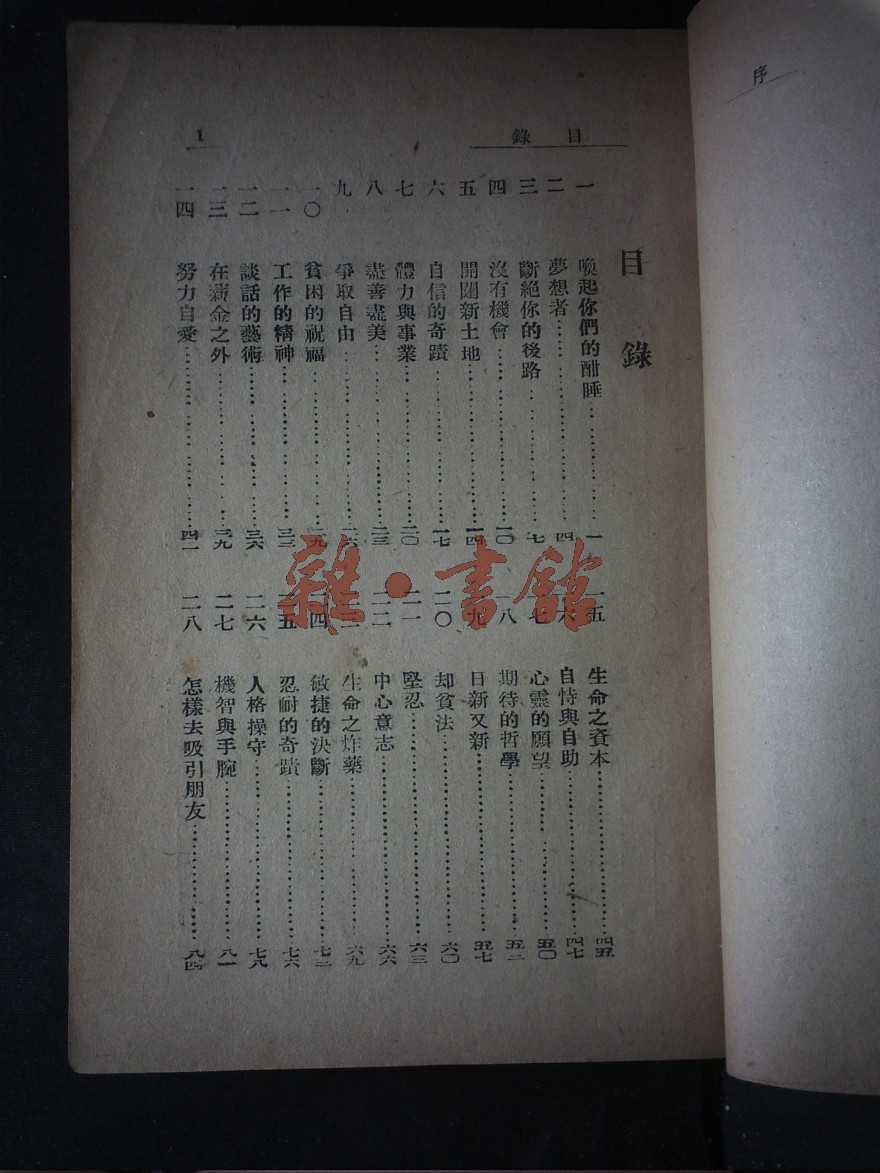 序
目錄
1
目錄
一 喚起你們的酣睡 一
二 夢想者 四
三 斷絕你的後路 七
四 沒有機會 一〇
五 開闢新土地 一四
六 自信的奇蹟 一七
七 體力與事業 二〇
八 盡善盡美 二三
九 爭取自由 二六
一〇 貧困的祝福 二九
一一 工作的精神 三三
一二 談話的藝術 三六
一三 在薪金之外 三九
一四 努力自愛 四一
一五 生命之資本 四五
六 自恃與自助 四七
七 心靈的願望 五〇
八 期待的哲學 五三
九 日新又新 五七
二〇 却貧法 六〇
二一 堅忍 六三
二二 中心意志 六六
生命之炸藥 六九
四 敏捷的決斷 七三
五 忍耐的奇蹟 七六
二六 人格操守 七八
二七 機智與手腕 八一
二八 怎樣去吸引朋友 八四
雜·書館